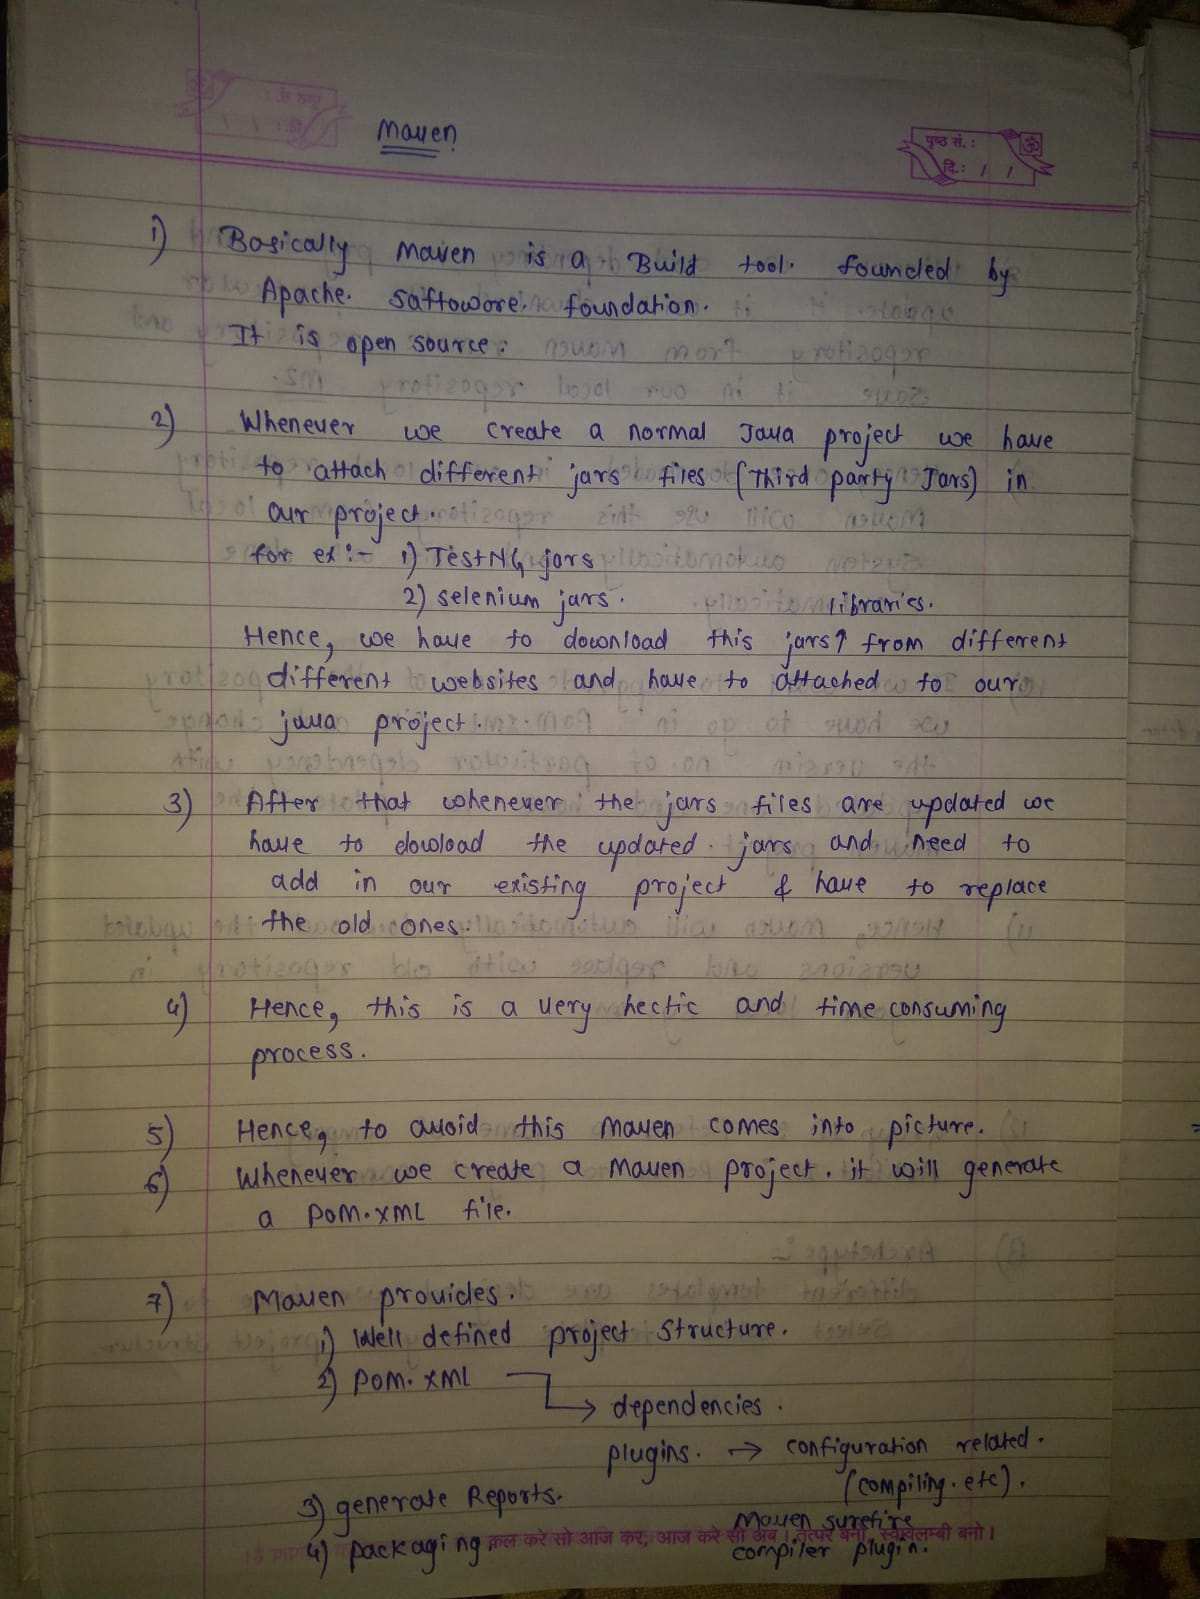 Maven
पृष्ठ सं.:
दि.: / /
1) Basically Maven is a Build tool. founded by
Apache. Saftowore. foundation.
It is open source.
2) Whenever we create a normal Java project we have
to attach different jars files (Third party Jars) in
our project.
for ex:- 1) TestNG jars
2) selenium jars.
libraries.
Hence, we have to download this jars↑ from different
different websites and have to attached to our
java project.
3) After that whenever the jars files are updated we
have to dowload the updated. jars and need to
add in our existing project & have to replace
the old ones.
4) Hence, this is a very hectic and time consuming
process.
5) Hence, to avoid this maven comes into picture.
6) Whenever we create a Maven project. it will generate
a POM.XML file.
7) Maven provides.
1) Well defined project structure.
2) POM.XML → dependencies.
plugins. → configuration related.
(compiling.etc).
3) generate Reports.
Maven surefire
4) packaging
compiler plugin.
कल करे सो आज कर, आज करे सो अब। तत्पर बनो, स्वावलम्बी बनो।